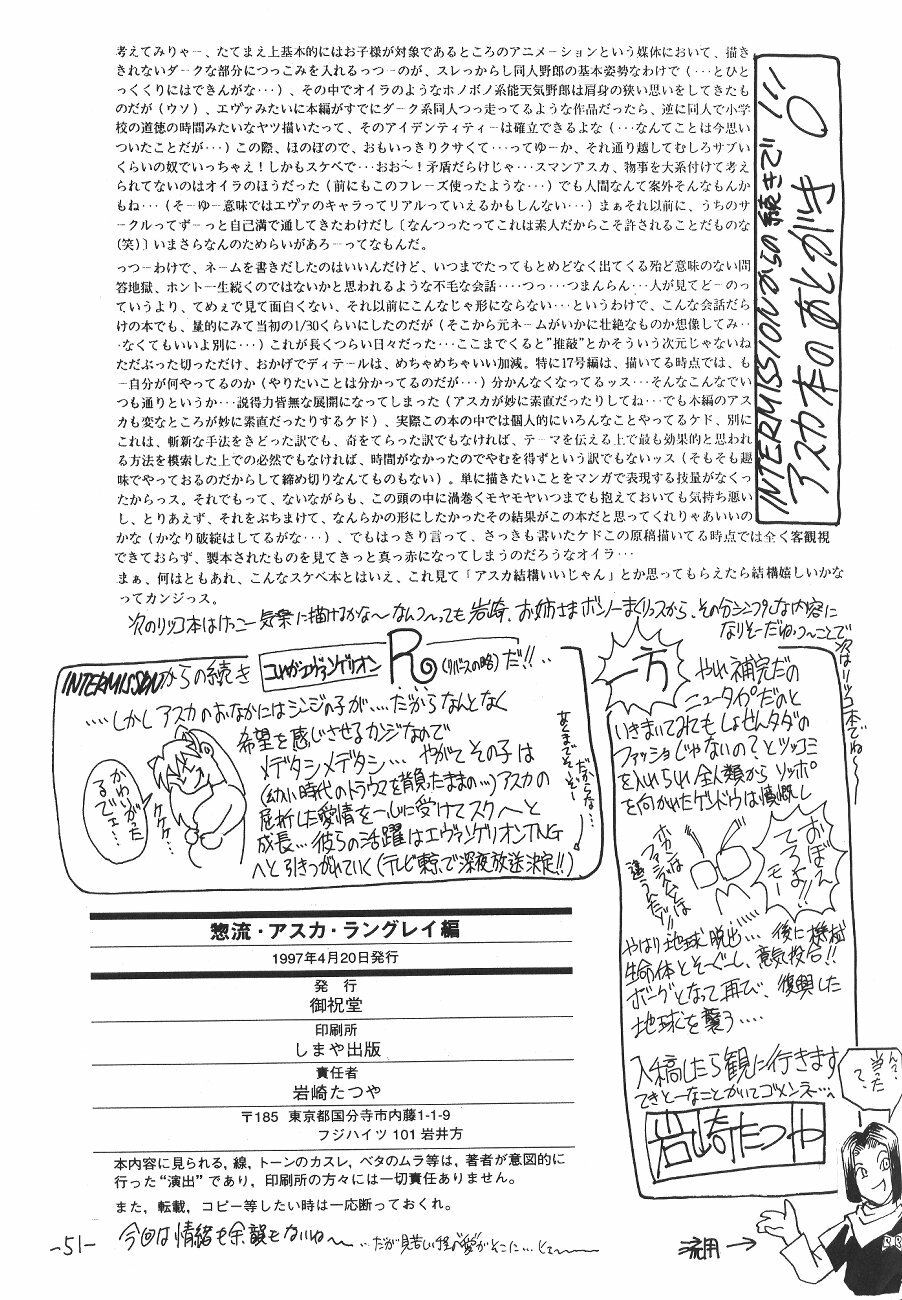 INTERMISSIONからの続きで!!
アスカ本のあとがき
考えてみりゃー、たてまえ上基本的にはお子様が対象であるところのアニメーションという媒体において、描き
きれないダークな部分につっこみを入れるっつーのが、スレっからし同人野郎の基本姿勢なわけで(・・・とひと
っくくりにはできんがな・・・)、その中でオイラのようなホノボノ系能天気野郎は肩身の狭い思いをしてきたも
のだが(ウソ)、エヴァみたいに本編がすでにダーク系同人つっ走ってるような作品だったら、逆に同人で小学
校の道徳の時間みたいなヤツ描いたって、そのアイデンティティーは確立できるよな(・・・なんてことは今思い
ついたことだが・・・)この際、ほのぼので、おもいっきりクサくて・・・ってゆーか、それ通り越してむしろサブい
くらいの奴でいっちゃえ!しかもスケベで・・・おお〜!矛盾だらけじゃ・・・スマンアスカ、物事を大系付けて考え
られてないのはオイラのほうだった(前にもこのフレーズ使ったような・・・)でも人間なんて案外そんなもんか
もね・・・(そーゆー意味ではエヴァのキャラってリアルっていえるかもしんない・・・)まぁそれ以前に、うちのサ
ークルってずーっと自己満で通してきたわけだし〔なんつったってこれは素人だからこそ許されることだものな
(笑)〕いまさらなんのためらいがあろーってなもんだ。
っつーわけで、ネームを書きだしたのはいいんだけど、いつまでたってもとめどなく出てくる殆ど意味のない問
答地獄、ホント一生続くのではないかと思われるような不毛な会話・・・・つっ・・・つまんらん・・・人が見てどーのっ
ていうより、てめぇで見て面白くない、それ以前にこんなじゃ形にならない・・・というわけで、こんな会話だら
けの本でも、量的にみて当初の1/30くらいにしたのだが(そこから元ネームがいかに壮絶なものか想像してみ・・
・なくてもいいよ別に・・・)これが長くつらい日々だった・・・ここまでくると"推敲"とかそういう次元じゃないね
ただぶった切っただけ、おかげでディテールは、めちゃめちゃいい加減。特に17号編は、描いてる時点では、も
ー自分が何やってるのか(やりたいことは分かってるのだが・・・)分かんなくなってるッス・・・そんなこんなでい
つも通りというか・・・説得力皆無な展開になってしまった(アスカが妙に素直だったりしてね・・・でも本編のアス
カも変なところが妙に素直だったりするケド)、実際この本の中では個人的にいろんなことやってるケド、別に
これは、斬新な手法をきどった訳でも、奇をてらった訳でもなければ、テーマを伝える上で最も効果的と思われ
る方法を模索した上での必然でもなければ、時間がなかったのでやむを得ずという訳でもないッス(そもそも趣
味でやっておるのだからして締め切りなんてものもない)。単に描きたいことをマンガで表現する技量がなくっ
たからっス。それでもって、ないながらも、この頭の中に渦巻くモヤモヤいつまでも抱えておいても気持ち悪い
し、とりあえず、それをぶちまけて、なんらかの形にしたかったその結果がこの本だと思ってくれりゃあいいの
かな(かなり破綻はしてるがな・・・)、でもはっきり言って、さっきも書いたケドこの原稿描いてる時点では全く客観視
できておらず、製本されたものを見てきっと真っ赤になってしまうのだろうなオイラ・・・
まぁ、何はともあれ、こんなスケベ本とはいえ、これ見て「アスカ結構いいじゃん」とか思ってもらえたら結構嬉しいかな
ってカンジっス。
次のリツコ本はけっこー気楽に描けるかな〜なんつっても岩崎、お姉さまボシューまくりっスから、その分シンプルな内容に
なりそーだね、つーことで
次はリツコ本でね〜
INTERMISSIONからの続き
エヴァンゲリオン
R(リバースの略)だ!!・・
・・・・しかしアスカのおなかにはシンジの子が・・・だからなんとなく
希望を感じさせるカンジなので
メデタシメデタシ・・・やがてその子は
(幼い時代のトラウマを背負ったままの・・・)アスカの
屈折した愛情を一心に受けてスクスクと
成長・・・彼らの活躍はエヴァンゲリオンTNG
へと引きつがれていく(テレビ東京で深夜放送決定!!)
かわいがったるでェ・・・
ケケケ
一方
やれ補完だの
ニュータイプだのと
いきまいてみてもしょせんタダの
ファッショじゃないの?とツッコミ
を入れられ全人類からソッポ
を向かれたゲンドウは憤慨し
おぼえてろよ!!モー
ホカンとファシズムは違うんだ!!
やはり地球脱出・・・後に機械
生命体とそーぐーし、意気投合!!
ボーグとなって再び、復興した
地球を襲う・・・・
入稿したら観に行きます
てきとーなことかいてゴメンネ・・・
岩崎たつや
ん?当ったて、
流用→
惣流・アスカ・ラングレイ編
1997年4月20日発行
発 行
御祝堂
印刷所
しまや出版
責任者
岩崎たつや
〒185 東京都国分寺市内藤1-1-9
フジハイツ 101 岩井方
本内容に見られる,線,トーンのカスレ,ベタのムラ等は,著者が意図的に
行った“演出”であり,印刷所の方々には一切責任ありません。
また,転載,コピー等したい時は一応断っておくれ。
今回は情緒も余韻もないね〜
-51-